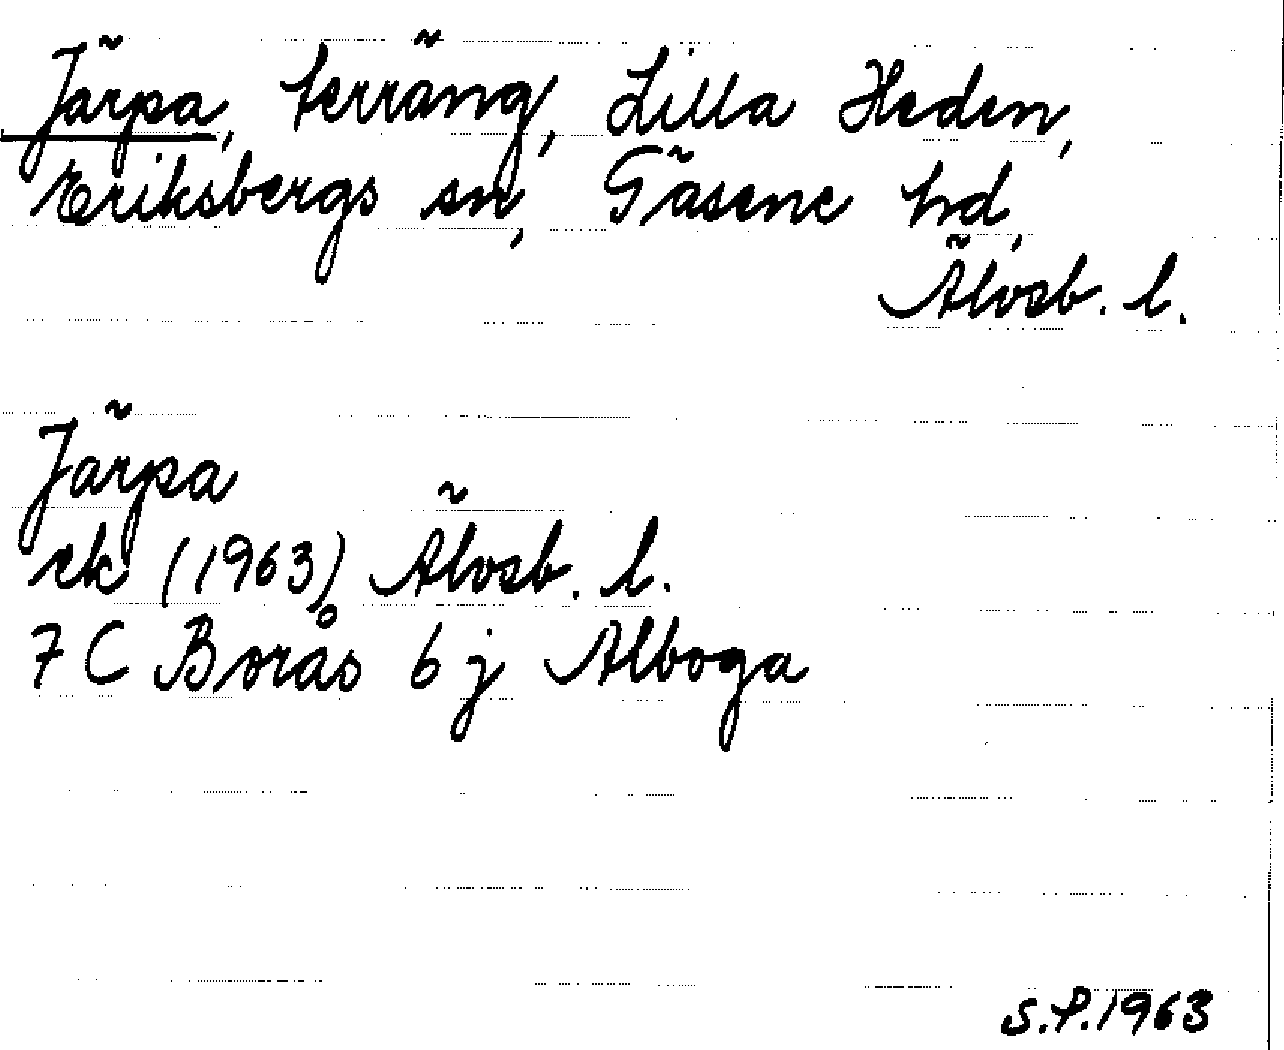 Järpa, terräng, Lilla Heden,
Eriksbergs sn, Gäsene hd,
Älvsb. l.
Järpa
ek (1963) Älvsb. l.
7 C Borås 6 j Alboga
S.P.1963